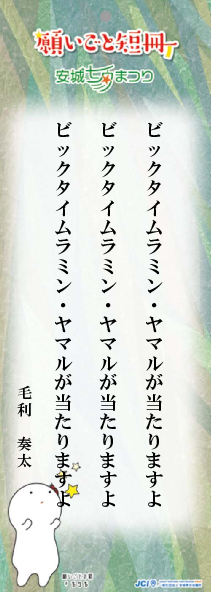 願いごと短冊
安城七夕まつり
ビックタイムラミン・ヤマルが当たりますよ
ビックタイムラミン・ヤマルが当たりますよ
ビックタイムラミン・ヤマルが当たりますよ
毛利 奏太
JCI